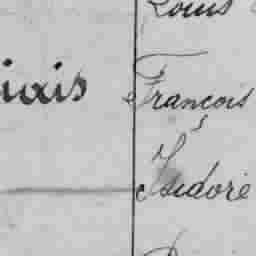 Louis
François
Isidore